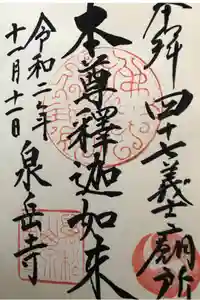 奉拜 四十七義士廟所
本尊釋迦如来
令和二年
十一月十一日 泉岳寺